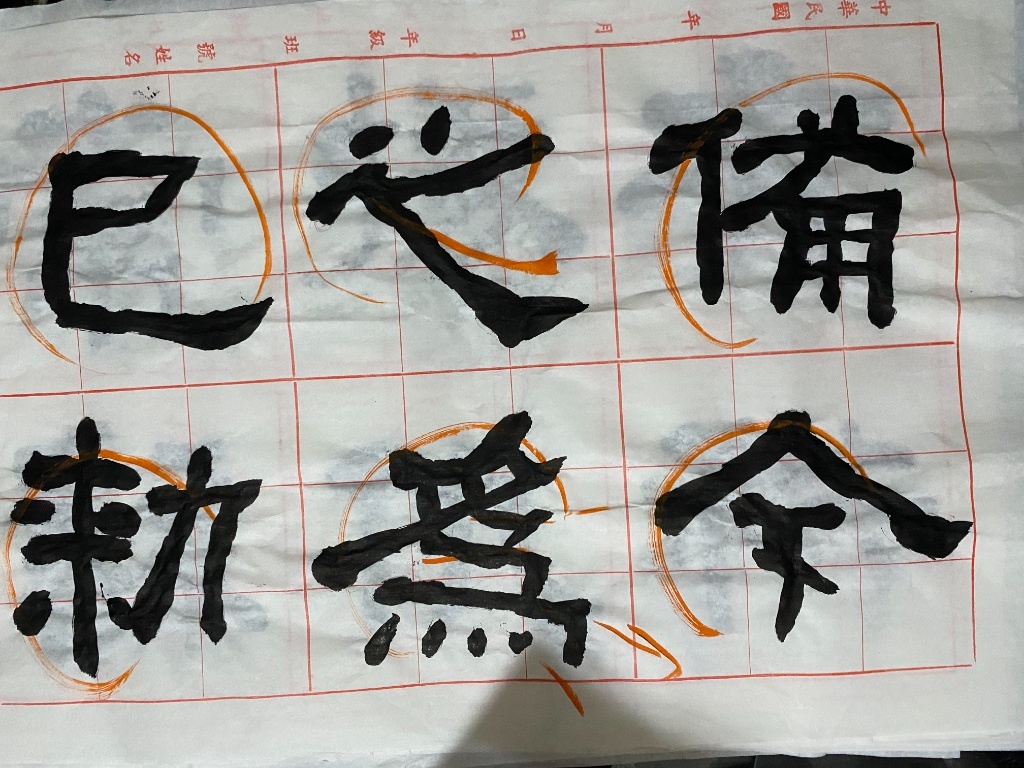 中華民國　年　月　日　年級　班　號　姓名
備令
之爲
已